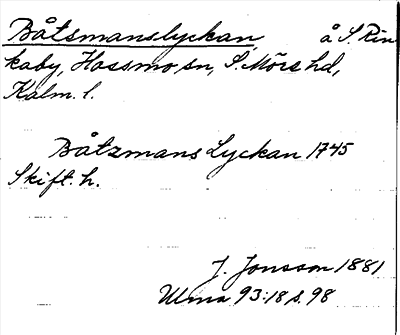 Båtsmanslyckan, å S. Rin-
kaby, Hossmo sn, S. Möre hd,
Kalm. l.
Båtzmans Lyckan 1745
Skift. h.
J. Jonsson 1881
Ulma 93:18 s. 98